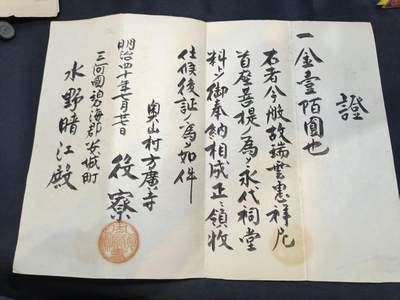 證
一金壹陌圓也
右者今般故瑞雲惠祥尼
首座菩提ノ為メ永代祠堂
料トシ御奉納相成正ニ領收
仕候後証ノ為メ如件
奥山村方廣寺
役寮
明治四十年一月廿日
三河國碧海郡安城町
水野晴江殿